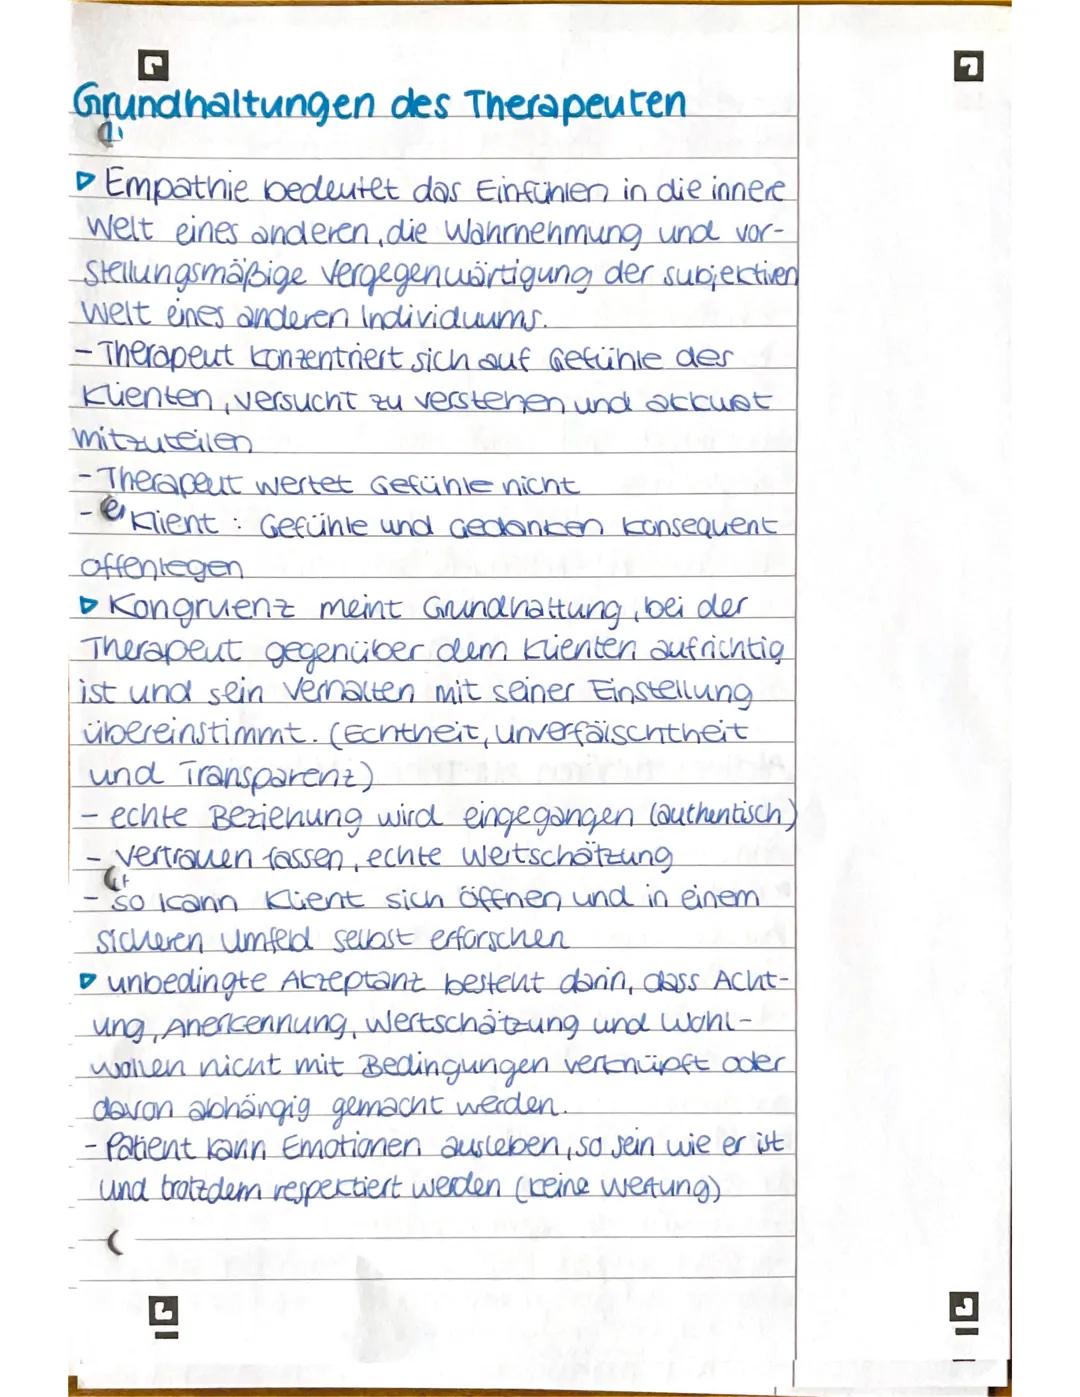 Grundhaltungen des Therapeuten
▷ Empathie bedeutet das Einfühlen in die innere
Welt eines anderen, die Wahrnehmung und vor-
stellungsmäßige Vergegenwärtigung der subjektiven
Welt eines anderen Individuums.
- Therapeut konzentriert sich auf Gefühle des
Klienten, versucht zu verstehen und akkurat
mitzuteilen
- Therapeut wertet Gefühle nicht
- Klient: Gefühle und Gedanken konsequent
offenlegen
▷ Kongruenz meint Grundhaltung, bei der
Therapeut gegenüber dem Klienten aufrichtig
ist und sein Verhalten mit seiner Einstellung
übereinstimmt. (Echtheit, Unverfälschtheit
und Transparenz)
- echte Beziehung wird eingegangen (authentisch)
- Vertrauen fassen, echte Wertschätzung
- so kann Klient sich öffnen und in einem
sicheren Umfeld selbst erforschen
▷ unbedingte Akzeptanz besteht darin, dass Acht-
ung, Anerkennung, Wertschätzung und Wohl-
wollen nicht mit Bedingungen verknüpft oder
davon abhängig gemacht werden.
- Patient kann Emotionen ausleben, so sein wie er ist
und trotzdem respektiert werden (keine Wertung)